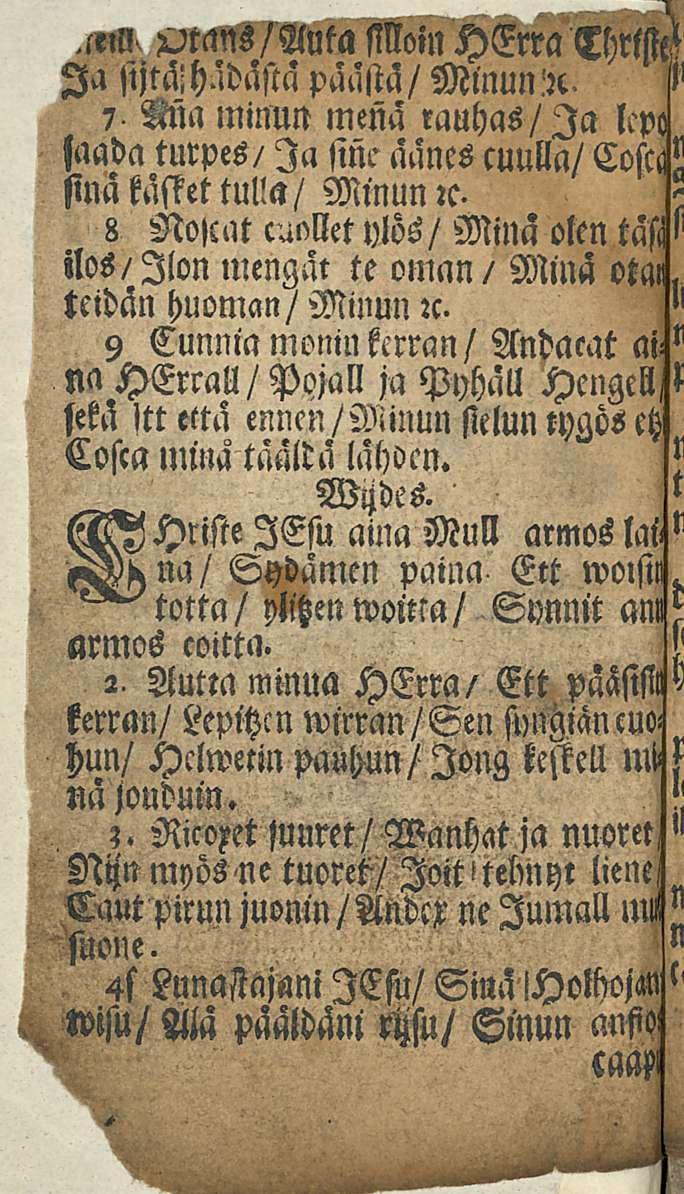 Otans / Auta silloin HErra Christe
Ja sijtä hädästä päästä / Minun ꝛc.
7. Aña minun meñä rauhas / Ja lepo
saada turpes / Ja siñe äänes cuulla / Cosca
sinä käsket tulla / Minun ꝛc.
8 Noscat cuollet ylös / Minä olen täsä
ilos / Ilon mengät te oman / Minä otan
teidän huoman / Minun ꝛc.
9 Cunnia monin kerran / Andacat ai-
na HErrall / Pojall ja Pyhäll Hengell /
sekä itt että ennen / Minun sielun tygös etz
Cosca minä tääldä lähden.
Wijdes.
CHriste JEsu aina Mull armos lai-
na / Sydämen paina Ett woisin
totta / ylitzen woitta / Synnit ann
armos coitta.
2. Autta minua HErra / Ett pääsisin
kerran / Lepitzen wirran / Sen syngiän cuo-
hun / Helwetin pauhun / Jong keskell mi-
nä jouduin.
3. Ricoxet suuret / Wanhat ja nuoret
Nijn myös ne tuoret / Joit tehnyt liene /
Taut pirun juonin / Andex ne Jumall
suone.
4s Lunastajani JEsu / Sinä Holhojan
wisu / Älä pääldäni rijsu / Sinun ansio
caap